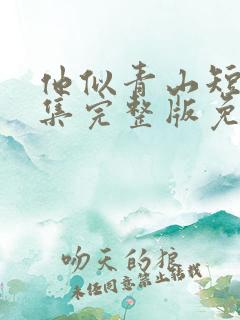 他似青山短
集完整版免
吻天的狼
未经同意禁止转载